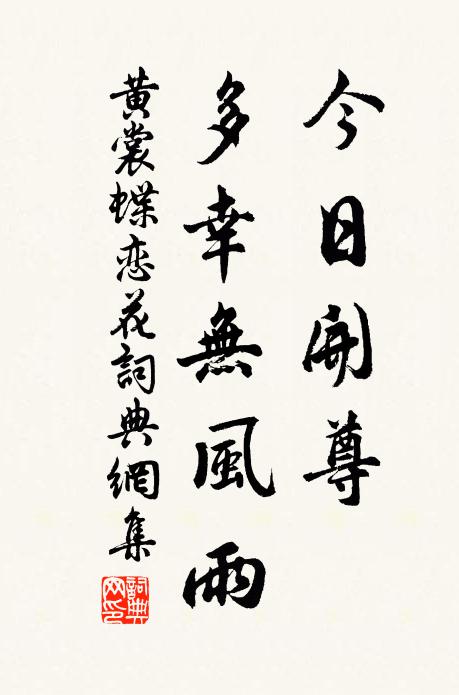 今日開尊
多幸無風雨
黃裳蝶恋花詞典網集
詞典
网印